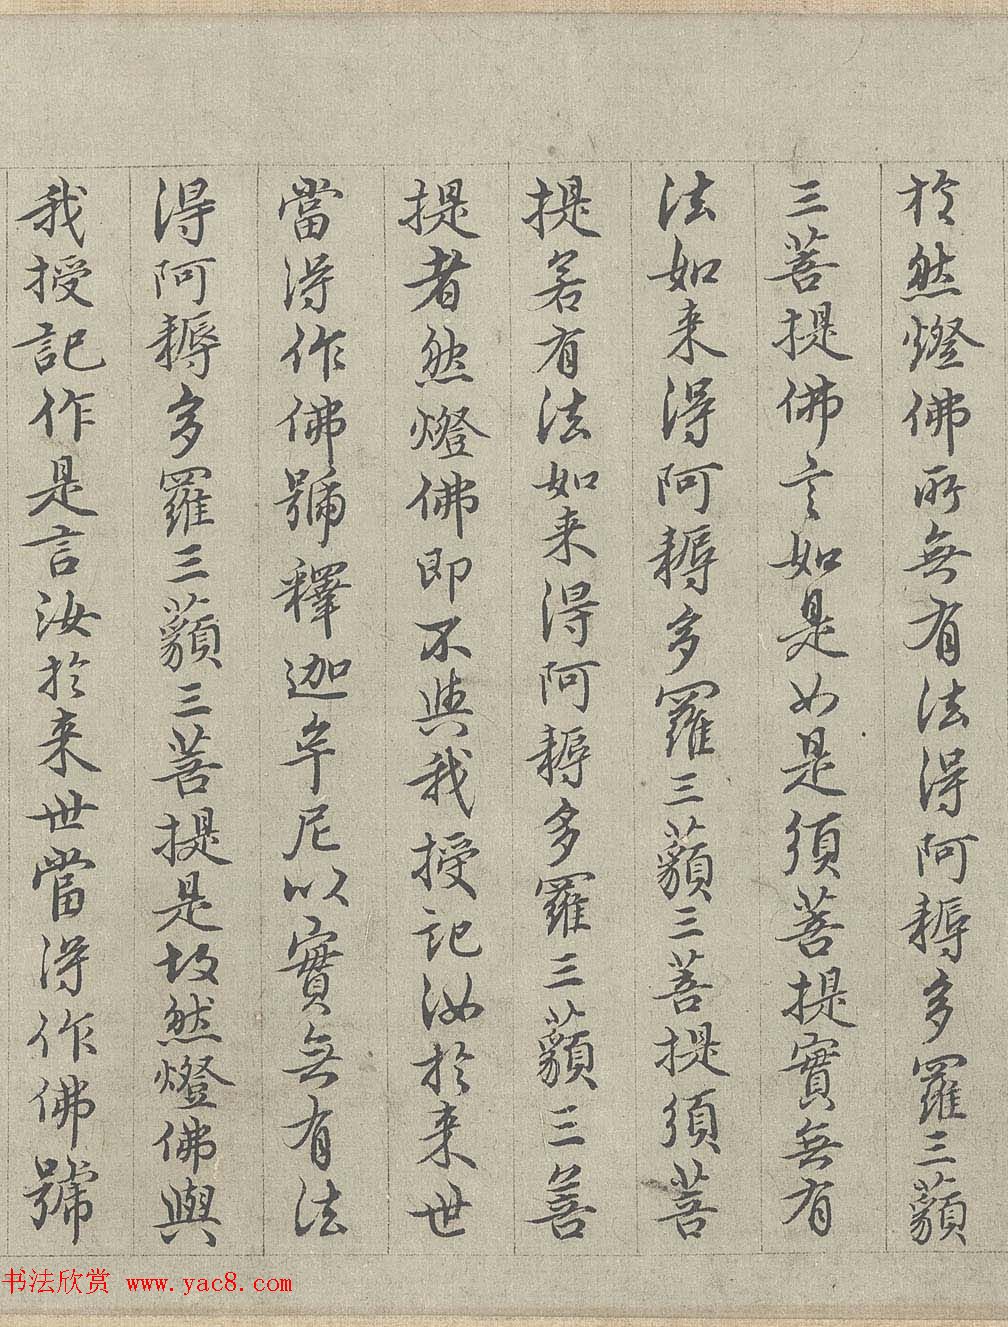 於然燈佛所無有法得阿耨多羅三藐
三菩提佛言如是如是須菩提實無有
法如来得阿耨多羅三藐三菩提須菩
提若有法如来得阿耨多羅三藐三菩
提者然燈佛即不與我授記汝於来世
當得作佛號釋迦牟尼以實無有法
得阿耨多羅三藐三菩提是故然燈佛與
我授記作是言汝於来世當得作佛號
书法欣赏 www.yac8.com